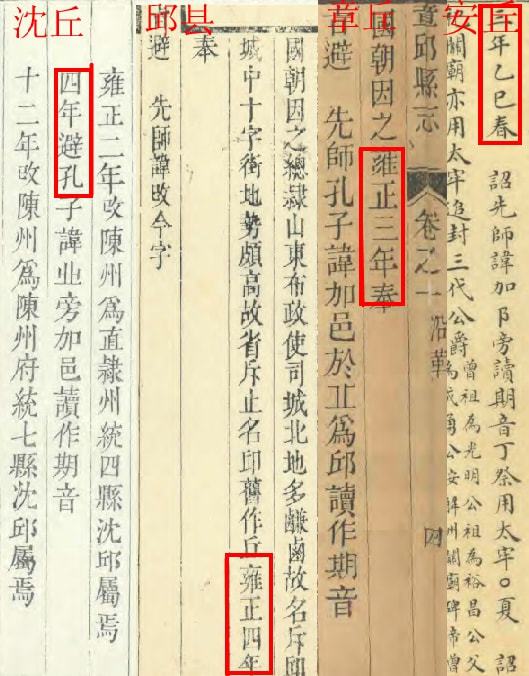 沈丘
邱县
章丘
安丘
三年乙巳春 詔先師諱加阝旁讀期音丁祭○夏 詔
關廟亦用太宰追封三代公爵
曾祖為光明公祖為裕昌公父
公安解州關廟碑帝曾
章邱縣志 卷之一 沿革 四
國朝因之雍正三年奉
旨避 先師孔子諱加邑於丘爲邱讀作期音
國朝因之總隸山東布政使司城北地多鹹鹵故名斥邱
城中十字街地勢頗高故省斥止名邱舊作丘雍正四年
奉
旨避 先師諱改今字
雍正二年改陳州爲直隸州統四縣沈邱屬焉
四年避孔子諱丘旁加邑讀作期音
十二年改陳州爲陳州府統七縣沈邱屬焉